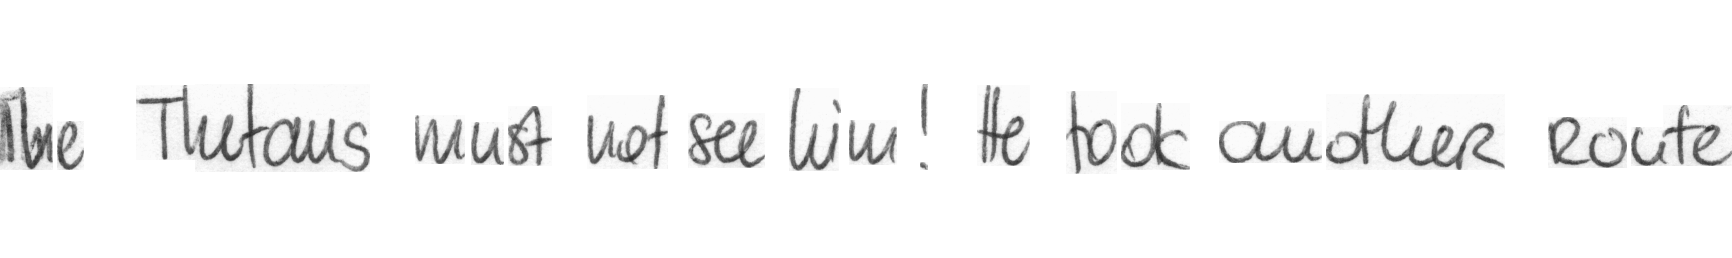 The Thetans must not see him! He took another route